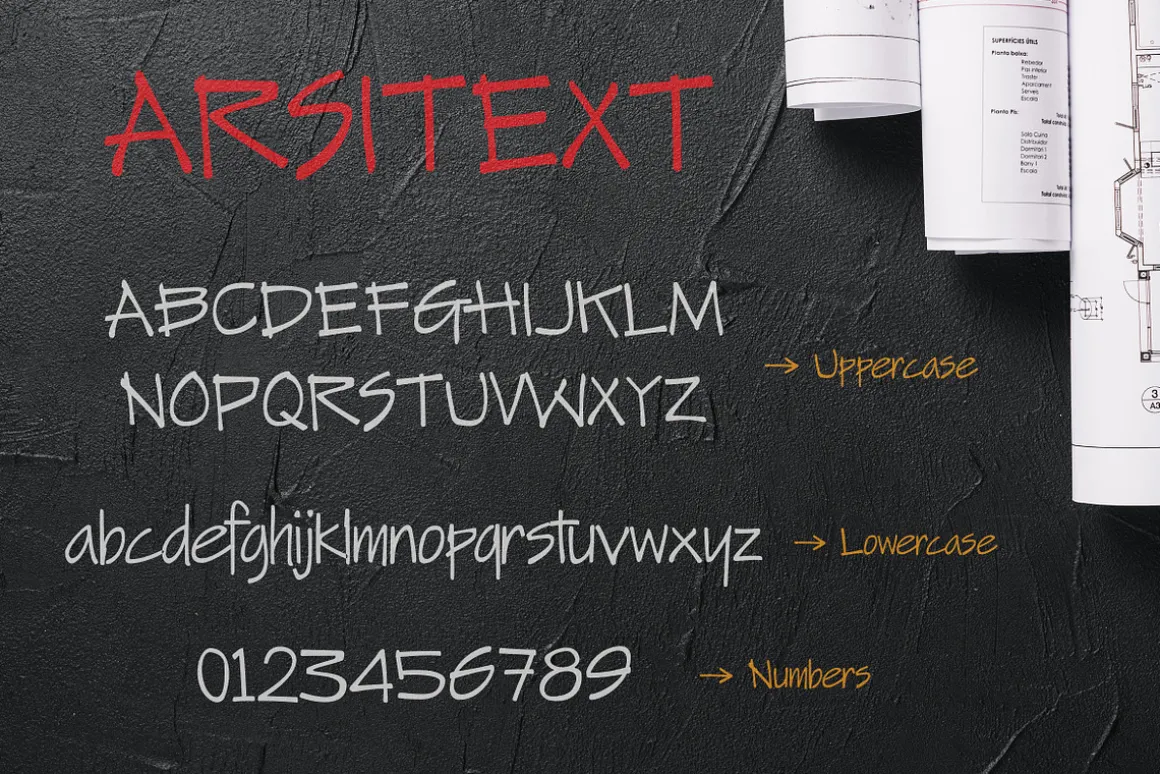 ARSITEXT
ABCDEFGHIJKLM
NOPQRSTUVWXYZ
→ Uppercase
abcdefghijklmnopqrstuvwxyz
→ Lowercase
0123456789
→ Numbers
SUPERFÍCIES ÚTILS
Planta baixa:
Rebedor
Pas interior
Traster
Aparcament
Serveis
Escala
Planta Pb:
Sala Cuina
Distribuidor
Dormitori 1
Dormitori 2
Bany 1
Escala
3
A3